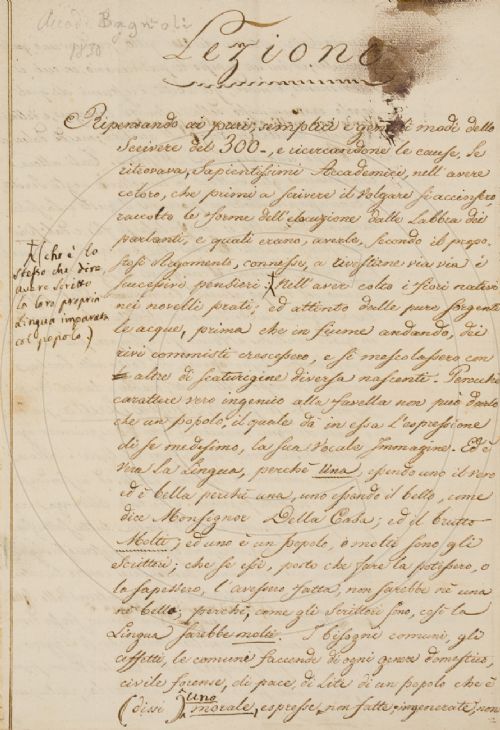 Accad. Bagnoli
1830
Lezione
Ripensando ai puri, semplici e gentili modi dello
Scrivere del 300-, e ricercandone le cause, le
ritrovava, Sapientissimi Accademici, nell'avere
coloro, che primi a scrivere il Volgare si accinsero
raccolto le forme dell'elocuzione dalle Labbra dei
parlanti, e quali erano, averle, secondo il propo-
stosi slegamento, connesse, a rivestirne via via i
successivi pensieri: Nell'aver colto i fiori nativi
(che è lo
stesso che dire
avere scritto
la loro propria
Lingua imparata
col popolo.)
nei novelli prati; ed attinto dalle pure sorgenti
le acque, prima che in fiume andando, dei
rivi commisti crescessero, e si mescolassero con
altre di scaturigine diversa nascenti. Perocchè
carattere vero ingenito alla favella non può darlo
che un popolo, il quale dà in essa l'espressione
di se medesimo, la sua Vocale Immagine. Ed è
vera la Lingua, perchè Una, essendo uno il vero
ed è bella perchè una, uno essendo il bello, come
dice Monsignor Della Casa; ed il brutto
Molti; ed uno è un popolo, o molti sono gli
Scrittori; che se essi, posto che fare la potessero, o
la sapessero, l'avessero fatta, non sarebbe nè una
nè bella, perchè, come gli Scrittori sono, così la
Lingua sarebbe molte. I bisogni comuni, gli
effetti, le comuni faccende di ogni genere domestico,
civile forense, di pace, di Lite di un popolo che è
(dissi) Uno morale, espresse, non fatte, ingenerate, non